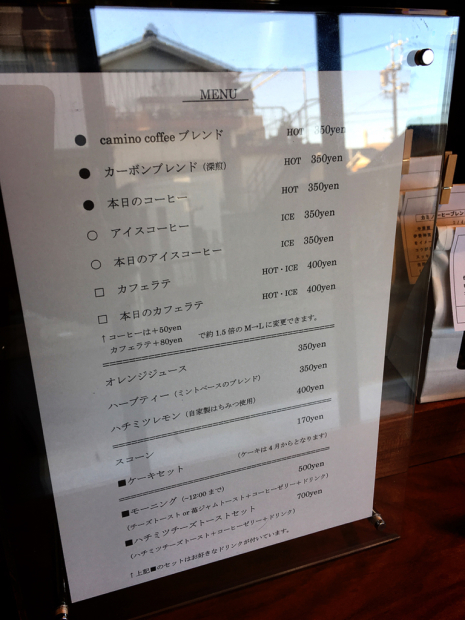 MENU
● camino coffee ブレンド HOT 350yen
● カーボンブレンド (深煎) HOT 350yen
● 本日のコーヒー HOT 350yen
○ アイスコーヒー ICE 350yen
○ 本日のアイスコーヒー ICE 350yen
□ カフェラテ HOT・ICE 400yen
□ 本日のカフェラテ HOT・ICE 400yen
↑コーヒーは+50yen
カフェラテ+80yen で約 1.5 倍の M→L に変更できます。
オレンジジュース 350yen
ハーブティー (ミントベースのブレンド) 350yen
ハチミツレモン (自家製はちみつ使用) 400yen
スコーン 170yen
■ケーキセット (ケーキは4月からとなります)
■モーニング (~12:00 まで) 500yen
(チーズトースト or 苺ジャムトースト+コーヒーゼリー+ドリンク)
■ハチミツチーズトーストセット 700yen
(ハチミツチーズトースト+コーヒーゼリー+ドリンク)
↑上記■のセットはお好きなドリンクが付いています。